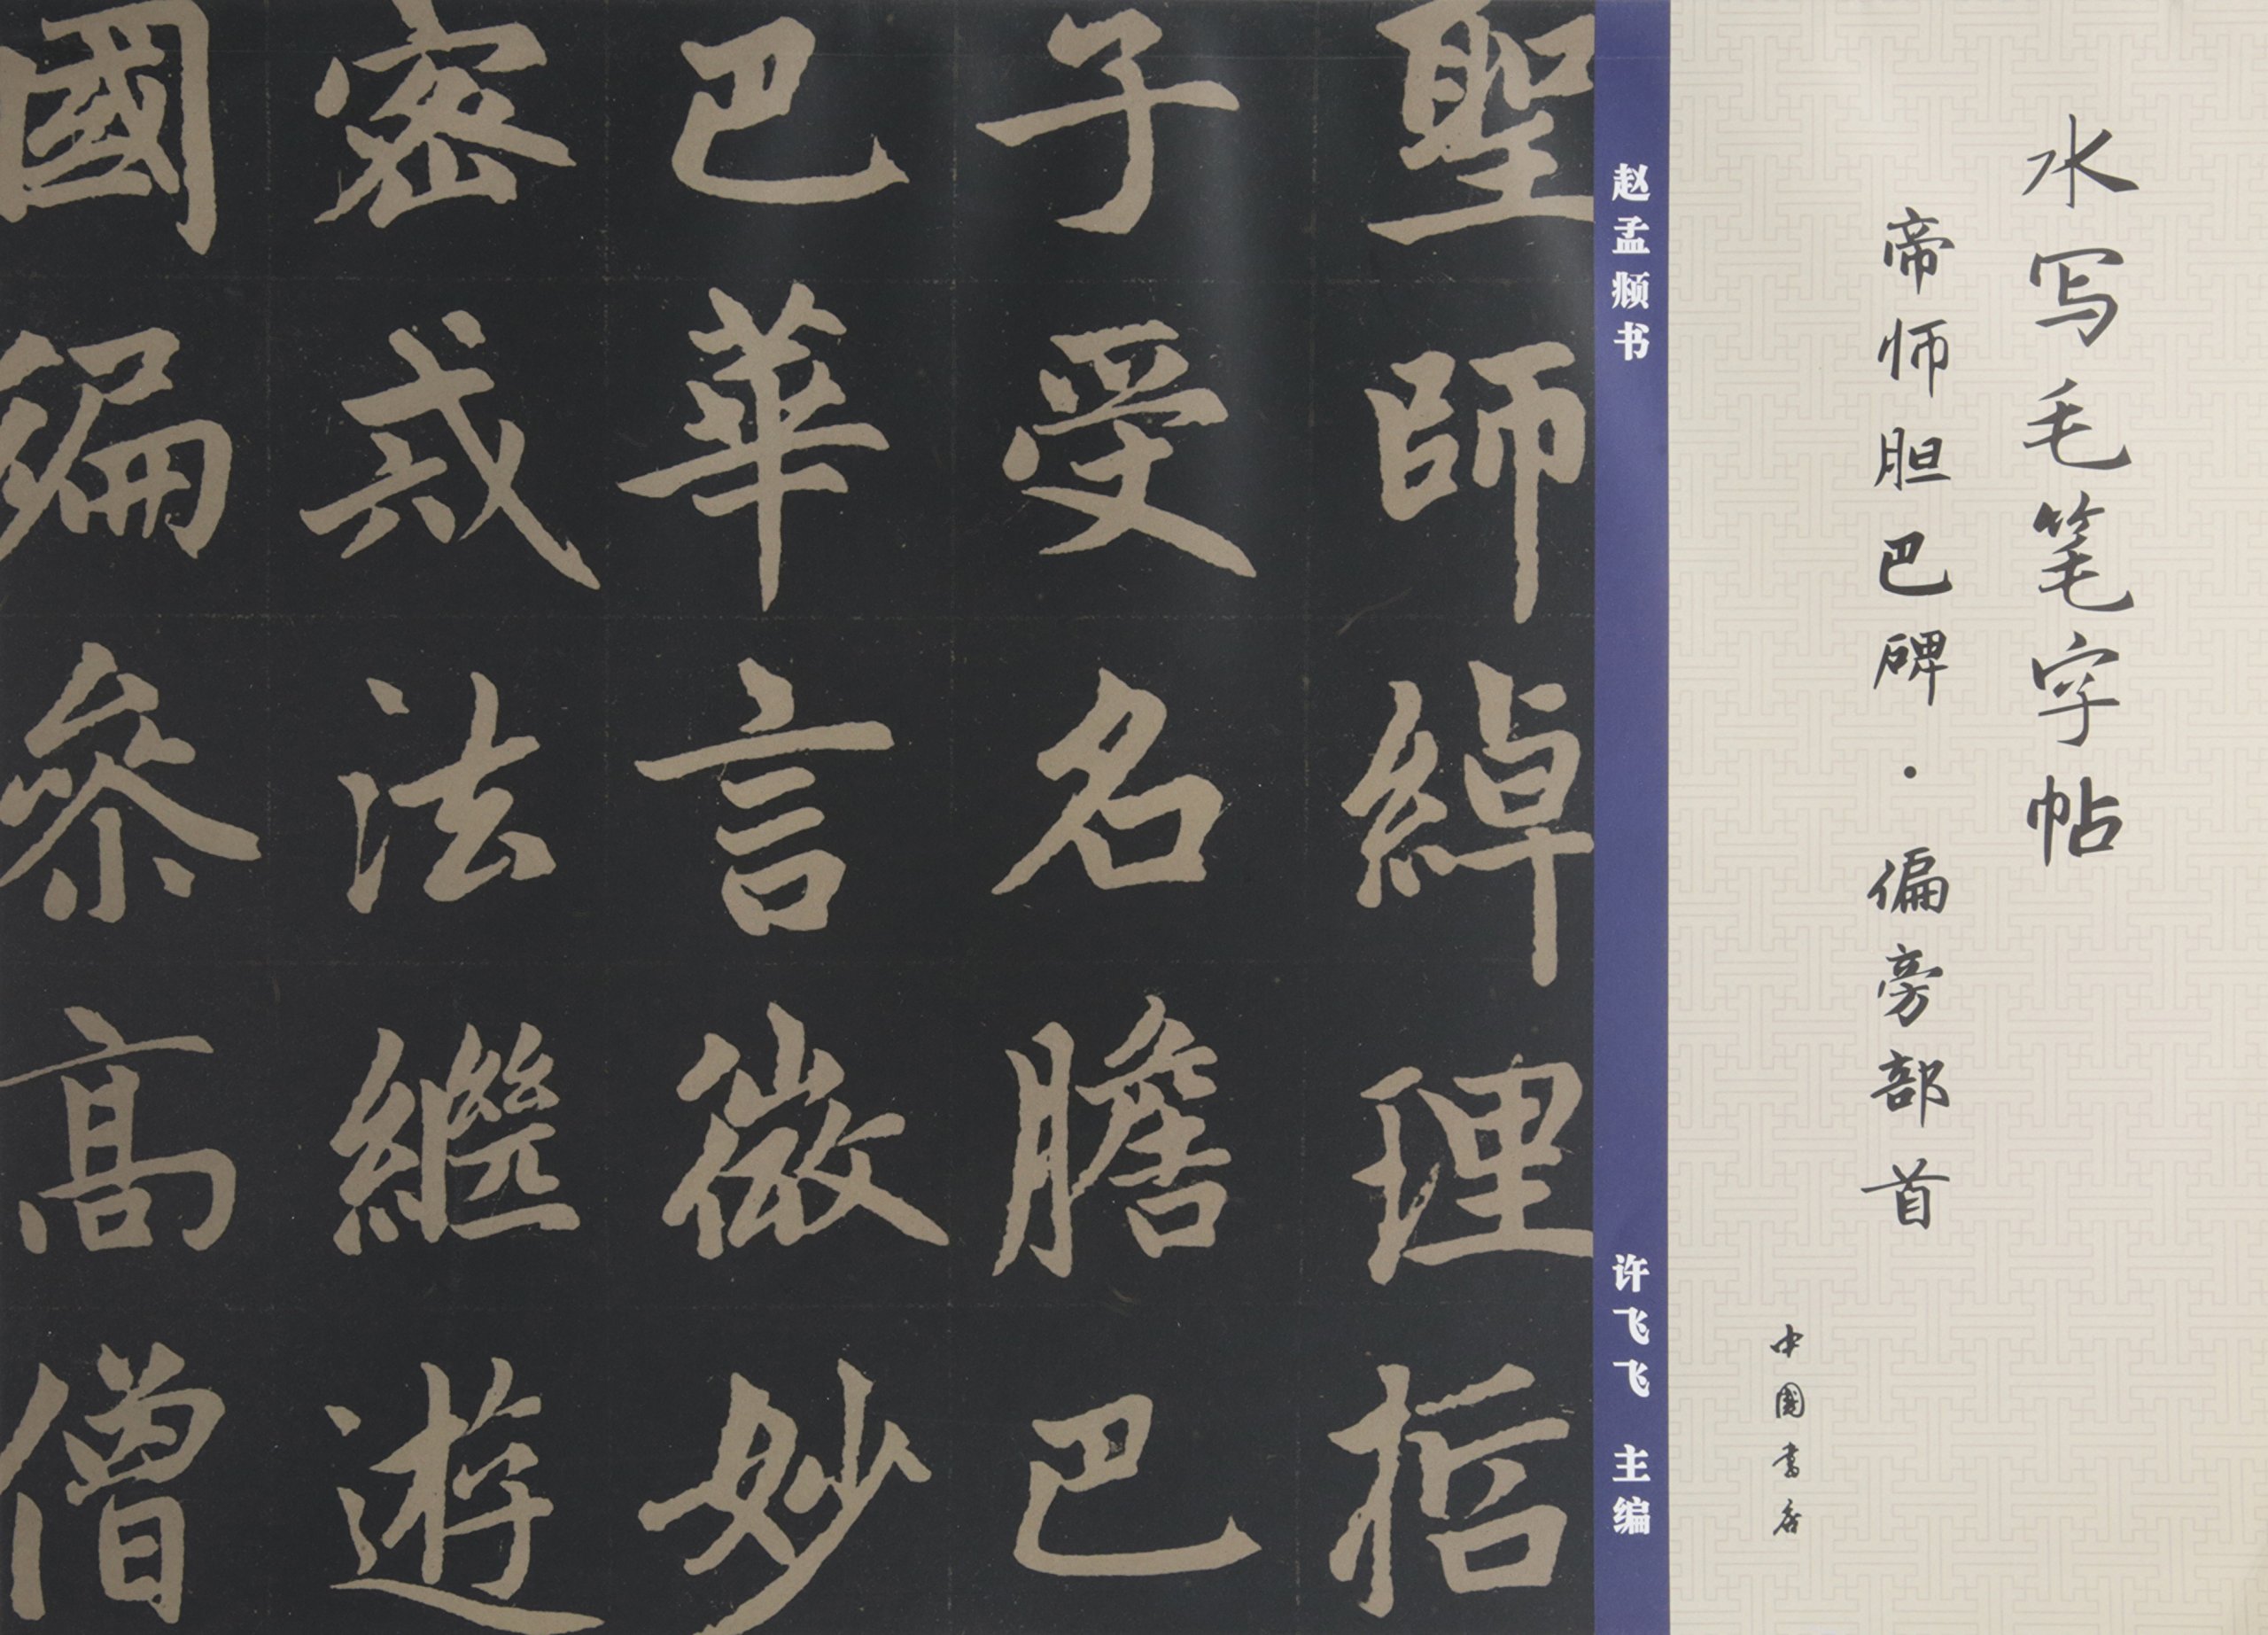 水写毛笔字帖
帝师胆巴碑·偏旁部首
中國書店
赵孟頫书
许飞飞 主编
聖師綽理哲
子受名膽巴
巴華言微妙
密戒法繼遊
國徧參高僧